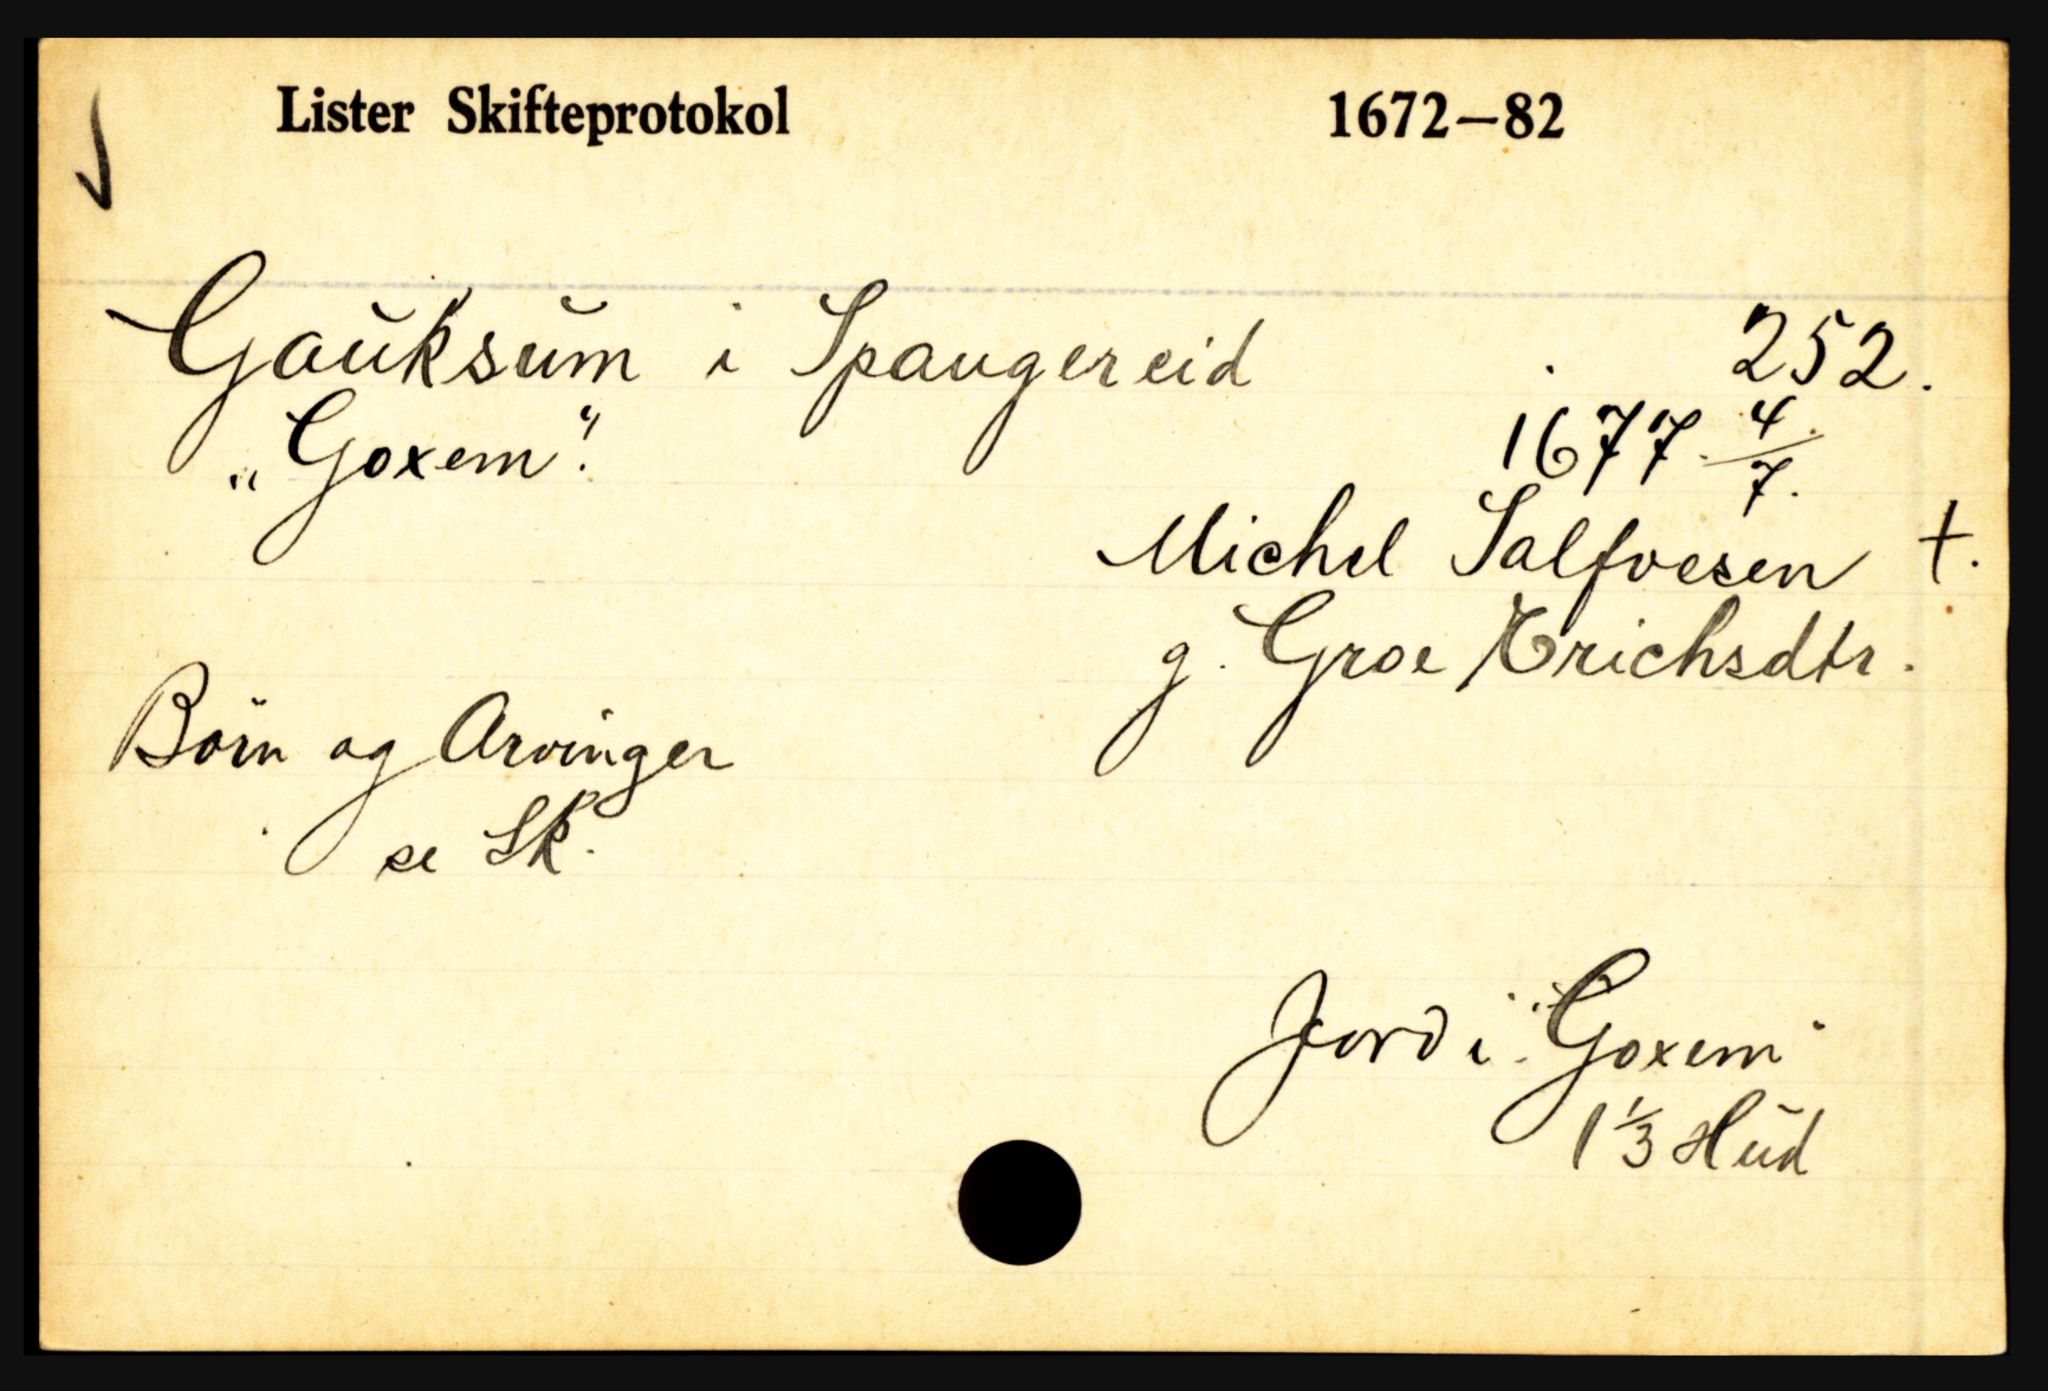 Lister Skifteprotokol 1672–82
Gauksum i Spangereid 252.
„Goxem". 1677. 4/7.
Michel Salfvesen †.
g. Groe Erichsdtr.
Börn og Arvinger
se Sk.
Jord i "Goxem"
1 1/3 Hud